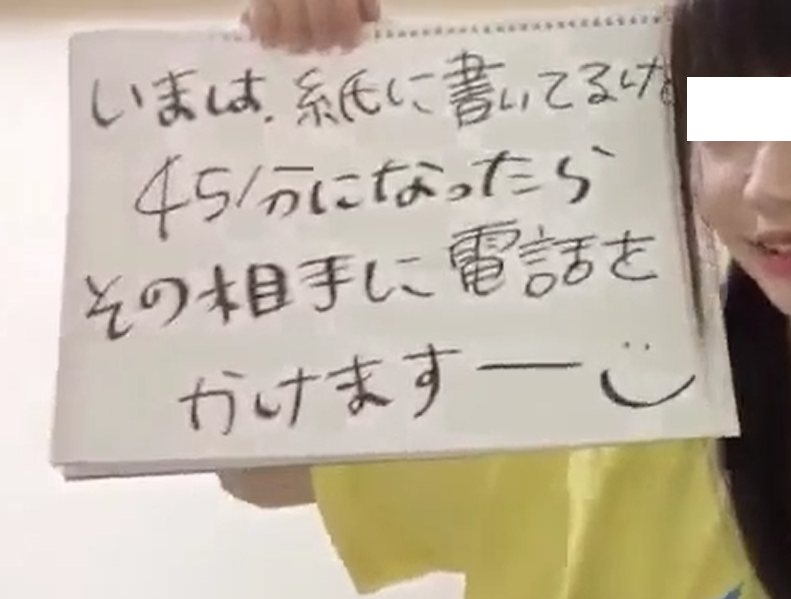 いまは、紙に書いてるけど
45分になったら
その相手に電話を
かけますー